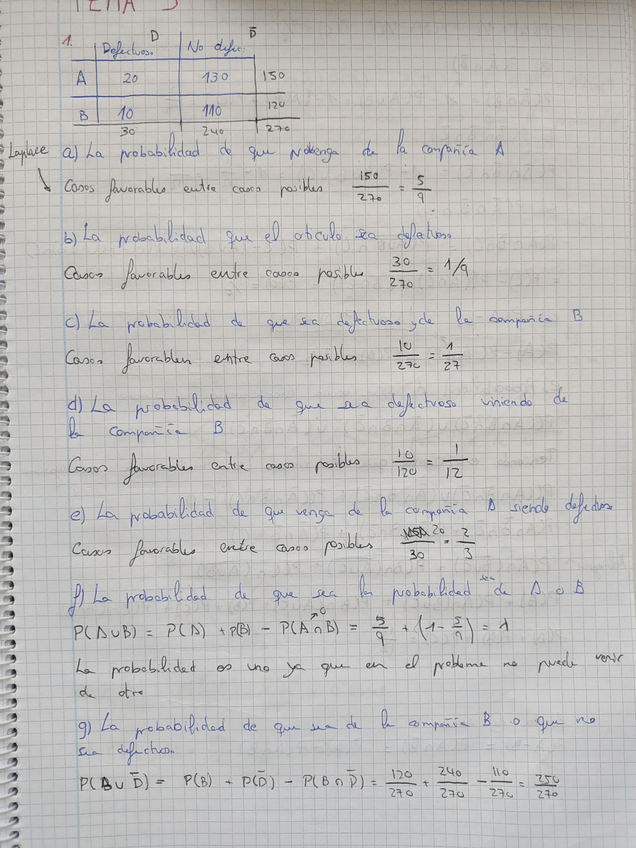 TEMA 3
1.
D D̄
Defectuoso No defec.
A 20 130 150
B 10 110 120
30 240 270
Laplace a) La probabilidad de que venga de la compañía A
Casos favorables entre casos posibles 150/270 = 5/9
b) La probabilidad que el articulo sea defectuoso
Casos favorables entre casos posibles 30/270 = 1/9
c) La probabilidad de que sea defectuoso y de la compañia B
Casos favorables entre casos posibles 10/270 = 1/27
d) La probabilidad de que sea defectuoso viniendo de
la compañia B
Casos favorables entre casos posibles 10/120 = 1/12
e) La probabilidad de que venga de la compañia A siendo defectuoso
Casos favorables entre casos posibles 20/30 = 2/3
f) La probabilidad de que sea la probabilidad sea de A o B
P(A∪B) = P(A) + P(B) - P(A∩B)→0 = 5/9 + (1 - 5/9) = 1
La probabilidad es uno ya que en el problema no puede venir
de otro
g) La probabilidad de que sea de la compañia B o que no
sea defectuoso
P(B∪D̄) = P(B) + P(D̄) - P(B∩D̄) = 120/270 + 240/270 - 110/270 = 250/270